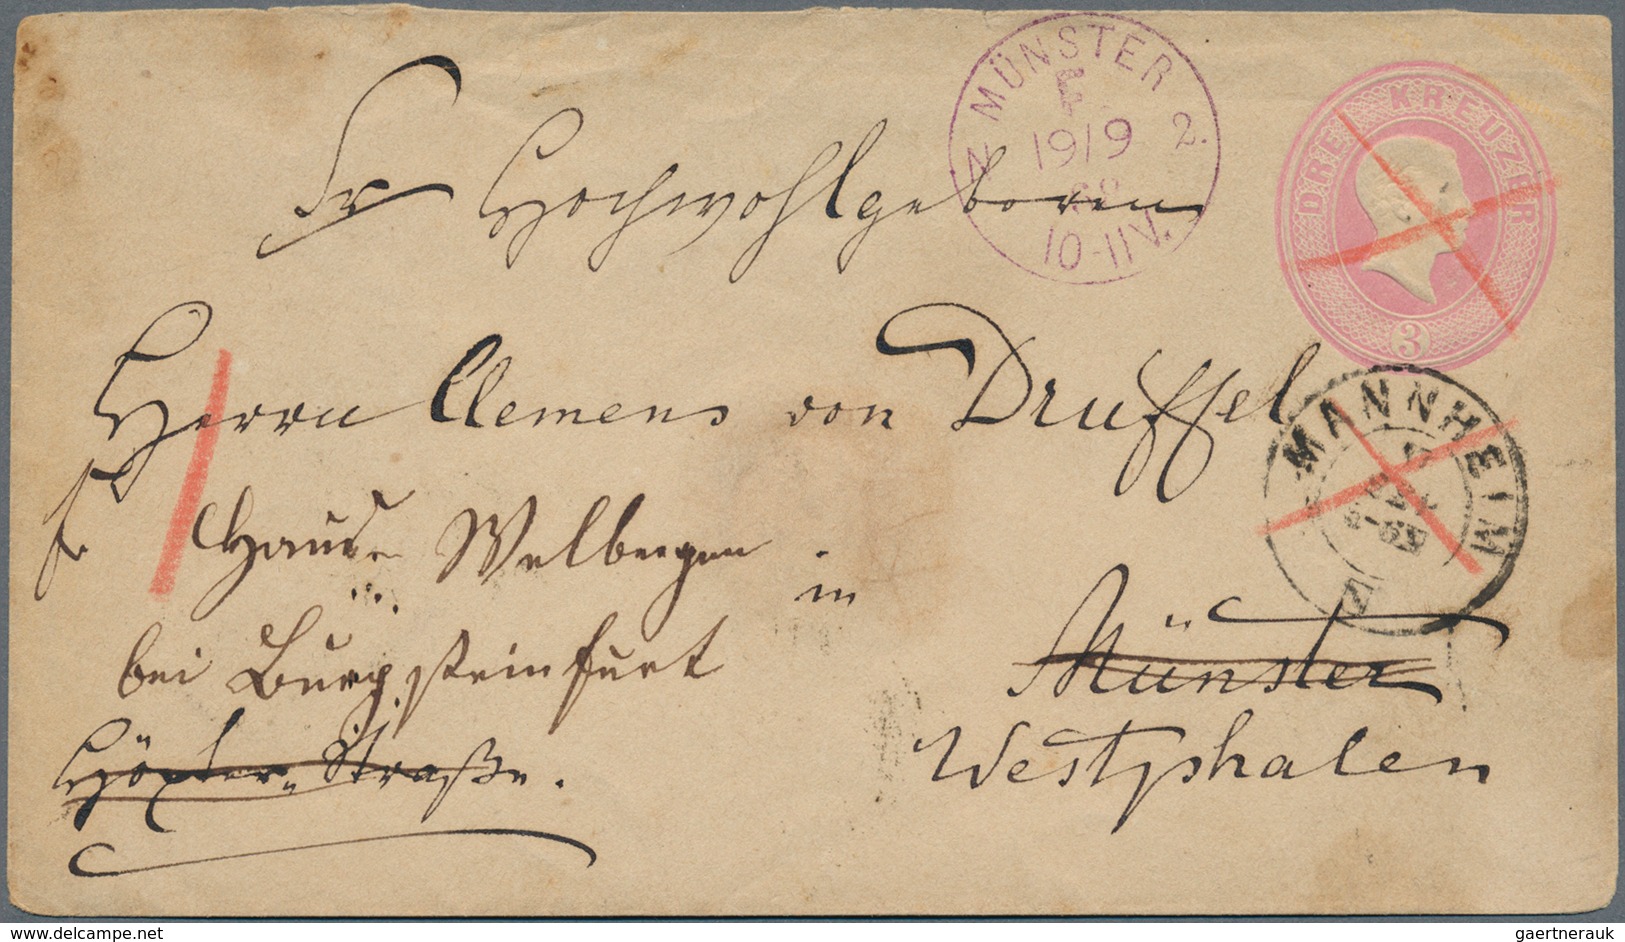 MÜNSTER
N 2.
19/9
68
10-11 V.
DREI KREUZER
3
Sr Hochwohlgeboren
Herrn Clemens von Druffel
Hause Welbergen
in
bei Burgsteinfurt
Münster
Höxter-Straße.
Westphalen
MANNHEIM
www.delcampe.net
gaertnerauk